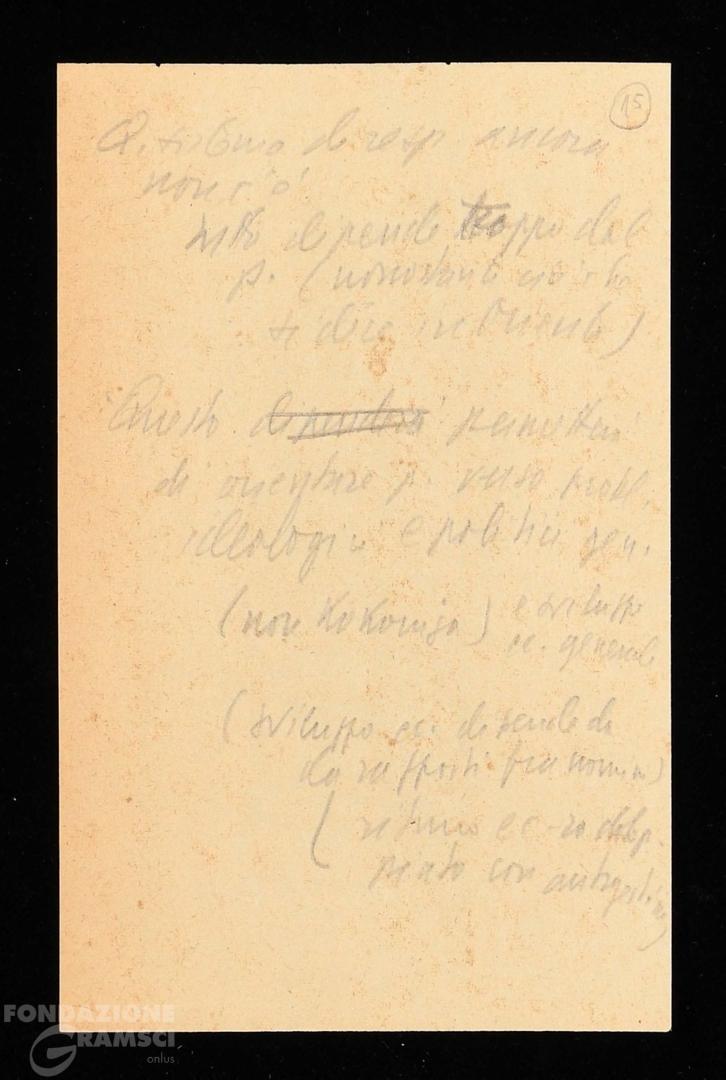 15
Q. sistema di resp. ancora
non c'è
tutto dipende troppo dal
p. (nonostante ciò che
si dice in Oriente)
Questo dipenderà permetterà
di orientare p. verso probl.
ideologici e politici gen.
(non Kokoniza) e sviluppo
ec. generale
(sviluppo ec. dipende da
da rapporti fra uomini)
(ritmo ec-co
con autogestione)
FONDAZIONE
GRAMSCI
onlus